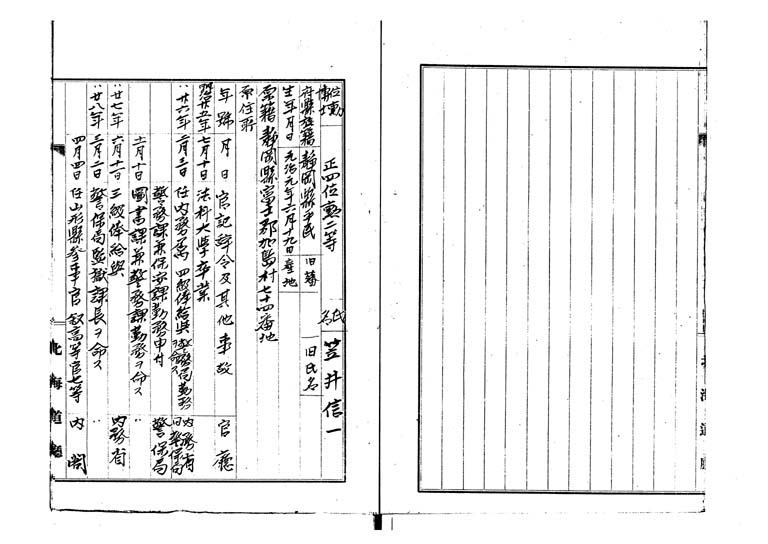 位勲 正四位勲二等
博士
氏名 笠井信一
府縣族籍 静岡縣平民 旧藩 旧氏名
生年月日 元治元年六月十九日 産地
原籍 静岡縣富士郡加島村七十四番地
現住所
年號 月日 官記辞令及其他事故 官廳
明治廿五年 七月十日 法科大学卒業
〃廿六年 二月三日 任内務属 四級俸給与 警保局勤務ヲ命ス 内務省 警保局
警務課兼保安課勤務申付 警保局
十一月十日 圖書課兼警務課勤務ヲ命ス 〃
〃廿七年 六月十二日 三級俸給与 内務省
〃廿八年 三月二日 警保局監獄課長ヲ命ス 〃
四月四日 任山形縣参事官 叙高等官七等 内閣
北海道廳
北海道廳